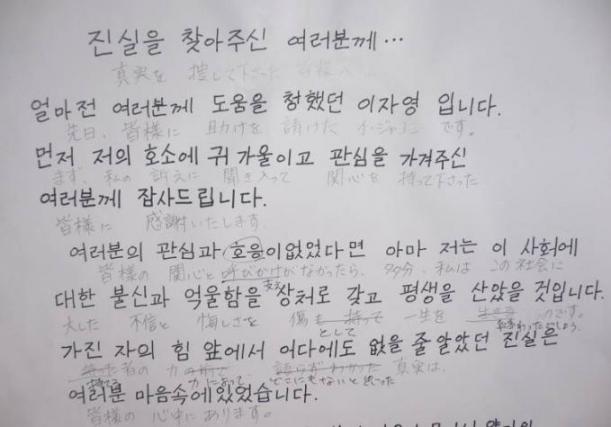 진실을 찾아주신 여러분께…
真実を 捜して下さった
얼마전 여러분께 도움을 청했던 이자영 입니다.
先日、皆様に 助けを 請けた イ・ジャヨン です。
먼저 저의 호소에 귀 기울이고 관심을 가져주신
まず、私の 訴えに 聞き入って 関心を 持って下さった
여러분께 잡사드립니다.
皆様に 感謝いたします。
여러분의 관심과 호응이 없었다면 아마 저는 이 사회에
皆様の 関心と 呼びかけがなかったら、多分、私は この社会に
대한 불신과 억울함을 상처로 갖고 평생을 산았을 것입니다.
大した 不信と 悔しさを 傷も 持って 一生を のです。
として
가진 자의 힘 앞에서 어디에도 없을 줄 알았던 진실은
者の 力 真実は
力によって どこにもないと思った
여러분 마음속에 있었습니다.
皆様の 心中に あります。